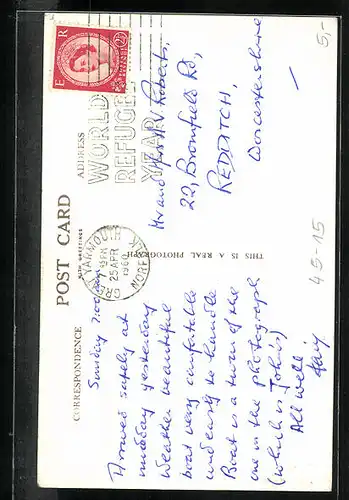 POST CARD
WITH GREETINGS
CORRESPONDENCE
ADDRESS
THIS IS A REAL PHOTOGRAPH
E R
2½
WORLD
REFUGEE
YEAR
GREAT YARMOUTH
25 APR
1960
NORFOLK
Sunday
Arrived safely at
midday yesterday
Weather beautiful
boat very comfortable
and easy to handle
Boat is a turn of the
one in the photograph
(which is John's)
All well
Mr and Mrs V Roberts,
22, Bromfield Rd,
REDDITCH,
Worcestershire
5,-
45-15